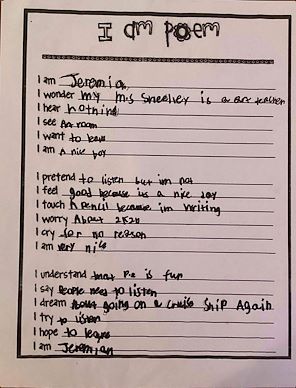 I am poem
I am Jeremia
I wonder my mrs sneeley is a art teacher
I hear nothing
I see Art room
I want to leave
I am A nice boy
I pretend to listen but im not
I feel good because its a nice day
I touch A pencil because im writing
I worry About 2K20
I cry for no reason
I am very nice
I understand that P.e is fun
I say people need to listen
I dream About going on a cruise ship Again
I try to listen
I hope to leave
I am Jeremiah